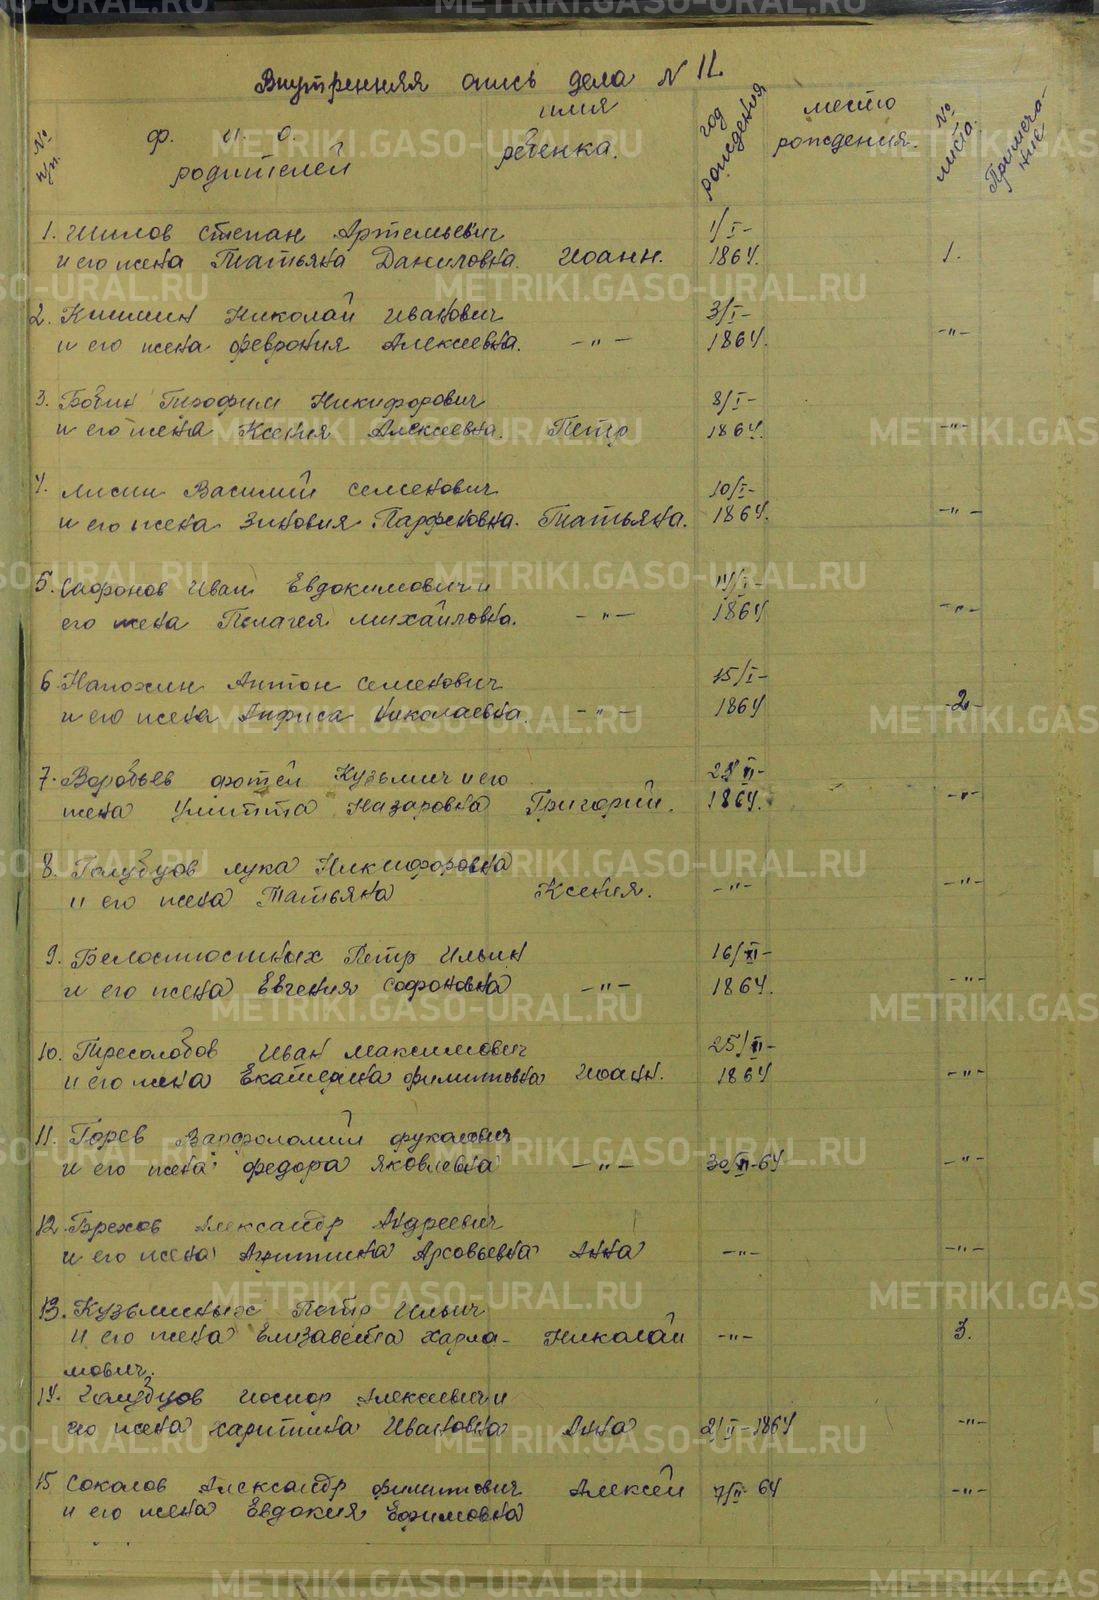 Внутренняя опись дела N 11.
№ п/п.
ф. и. о. родителей
имя ребенка.
год рождения
место рождения.
№ листа.
Примечание
1. Шилов Степан Артемьевич
и его жена Татьяна Даниловна. Иоанн. 1/I- 1864. 1.
2. Кишин Николай Иванович
и его жена Феврония Алексеевна. -"- 3/I- 1864. -"-
3. Бабин Трофим Никифорович
и его жена Ксения Алексеевна. Петр 8/I- 1864. -"-
4. Лисин Василий Семенович
и его жена Зиновия Парфеновна. Татьяна. 10/I- 1864. -"-
5. Сафонов Иван Евдокимович и
его жена Пелагея Михайловна. -"- 1864 -"-
6. Напохин Антон Семенович
и его жена Анфиса Николаевна. -"- 15/I- 1864 -2-
7. Воробьев Фотей Кузьмич и его
жена Улитта Назаровна Григорий. 1864. -"-
8. Голубцов Лука Никифоровна
и его жена Татьяна Ксения. -"- -"-
9. Белостностных Петр Ильин
и его жена Евгения Софоновна -"- 1864. -"-
10. Тресолобов Иван Максимович
и его жена Екатерина Филиповна Иоанн. 1864 -"-
11. Горев Варфоломий
и его жена Федора Яковлевна -"- -"-
12. Брехов Александр Андреевич
и его жена Анна -"- -"-
13. Кузьминых Петр Ильич
и его жена Елизавета Харла- Николай -"- 3.
мович.
14. Голубцов Иосиф Алексеевич и
его жена Харитина Ивановна Анна 2/II-1864 -"-
15 Соколов Александр Филиппович Алексей 7/II- 64 -"-
и его жена Евдокия Ефимовна
METRIKI.GASO-URAL.RU